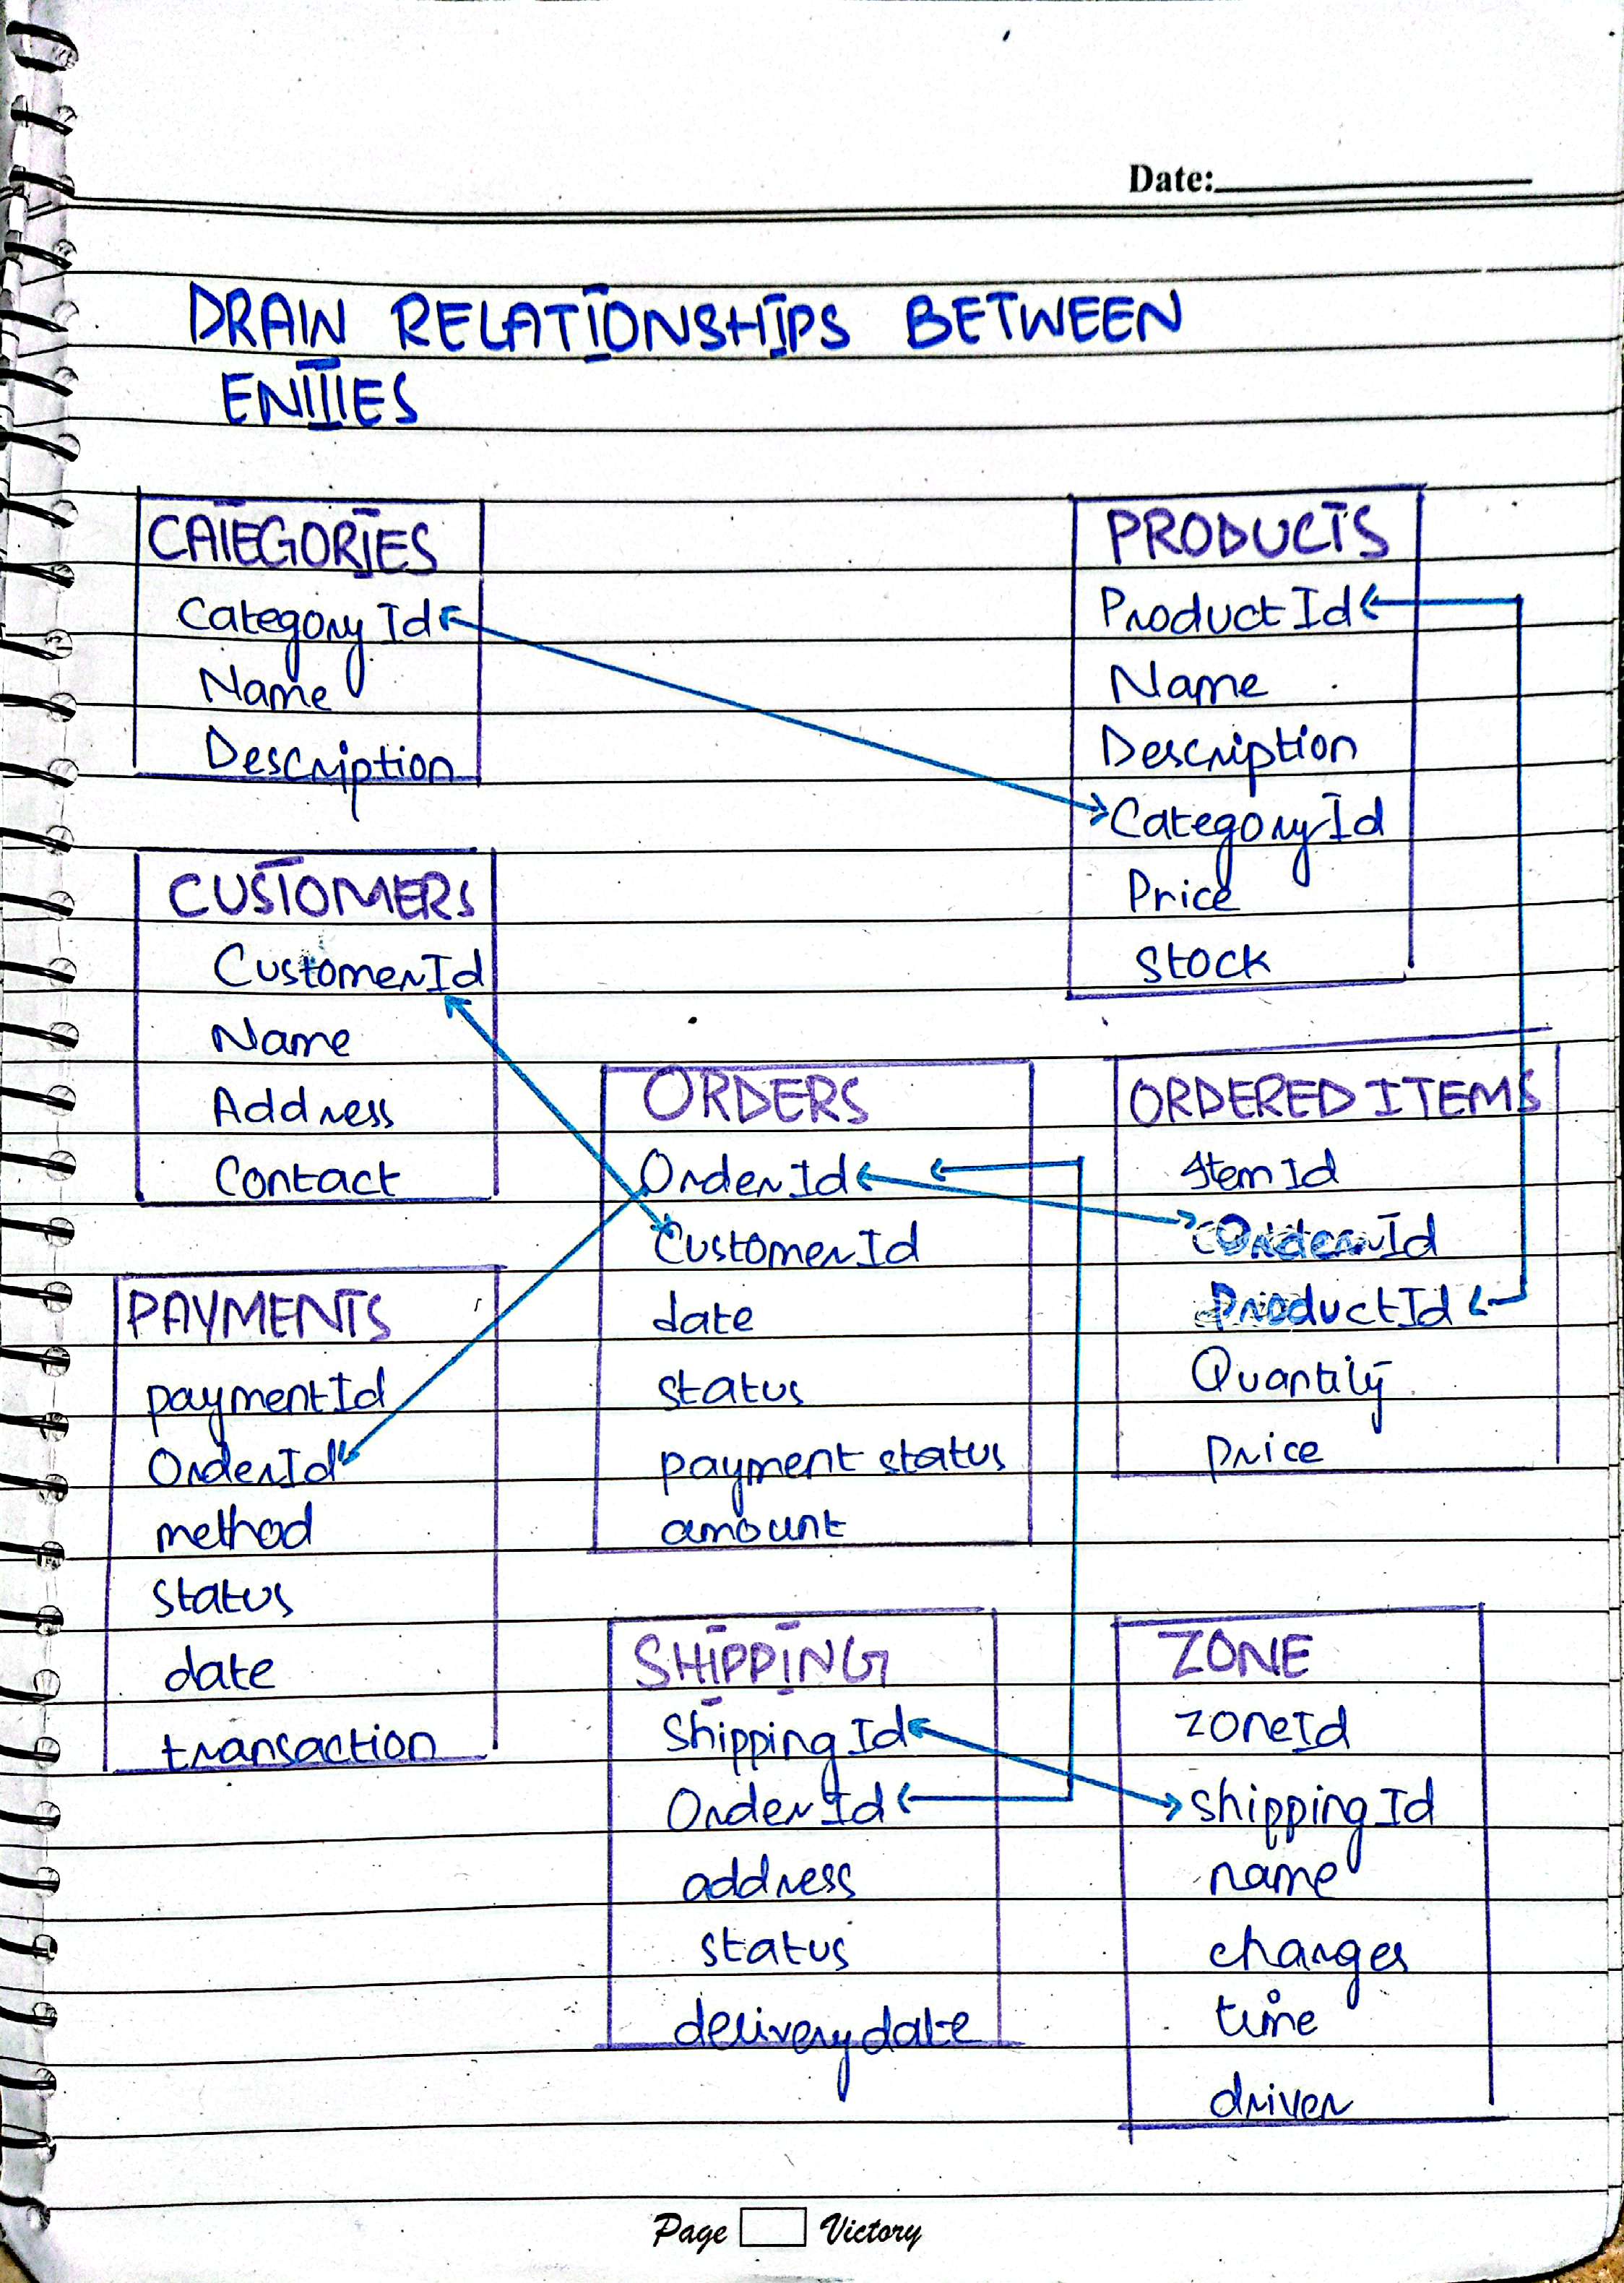 Date:
DRAW RELATIONSHIPS BETWEEN
ENTITIES
CATEGORIES
Category Id
Name
Description
PRODUCTS
Product Id
Name
Description
CategoryId
Price
Stock
CUSTOMERS
CustomerId
Name
Address
Contact
ORDERS
OrderId
CustomerId
date
status
payment status
amount
ORDERED ITEMS
ItemId
OrderId
ProductId
Quantity
price
PAYMENTS
paymentId
OrderId
method
status
date
transaction
SHIPPING
Shipping Id
Order Id
address
status
deliverydate
ZONE
zoneId
shipping Id
name
charges
time
driver
Page Victory